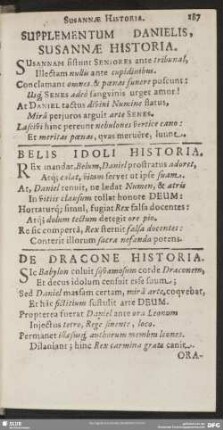 SUSANNÆ HISTORIA. 187
SUPPLEMENTUM DANIELIS,
SUSANNÆ HISTORIA.
SUSANNAM sistunt SENIORES ante tribunal,
Illectam nulli ante cupidinibus.
Conclamant omnes & pœnas sumere poscunt:
Usq; SENES adeò sanguinis urget amor!
At DANIEL tactus divini Numine flatus,
Mirâ perjuros arguit arte SENES.
Lascivi hinc pereunt nebulones vertice cano:
Et meritas pœnas, quas meruêre, luunt.
BELIS IDOLI HISTORIA.
REx mandat, Belum, Daniel prostratus adoret,
Atq; colat, vitam servet ut ipse suam.
At, Daniel renuit, ne lædat Numen, & atris
In vitiis clausum tollat honore DEUM:
Hortaturq; simul, fugiat Rex falsa docentes:
Atq; dolum tectum detegit ore pio.
Re sic compertâ, Rex sternit falsa docentes:
Conterit illorum sacra nefanda potens.
DE DRACONE HISTORIA.
SIc Babylon coluit squamosum corde Draconem,
Et decus idolum censuit esse suum:
Sed Daniel massam certam, mirâ arte, coquebat,
Et hâc fictitium sustulit arte DEUM.
Propterea fuerat Daniel ante ora Leonum
Injectus tetro, Rege sinente, loco.
Permanet illæsusq; authorum membra leones
Dilaniant; hinc Rex carmina grata canit.
ORA-